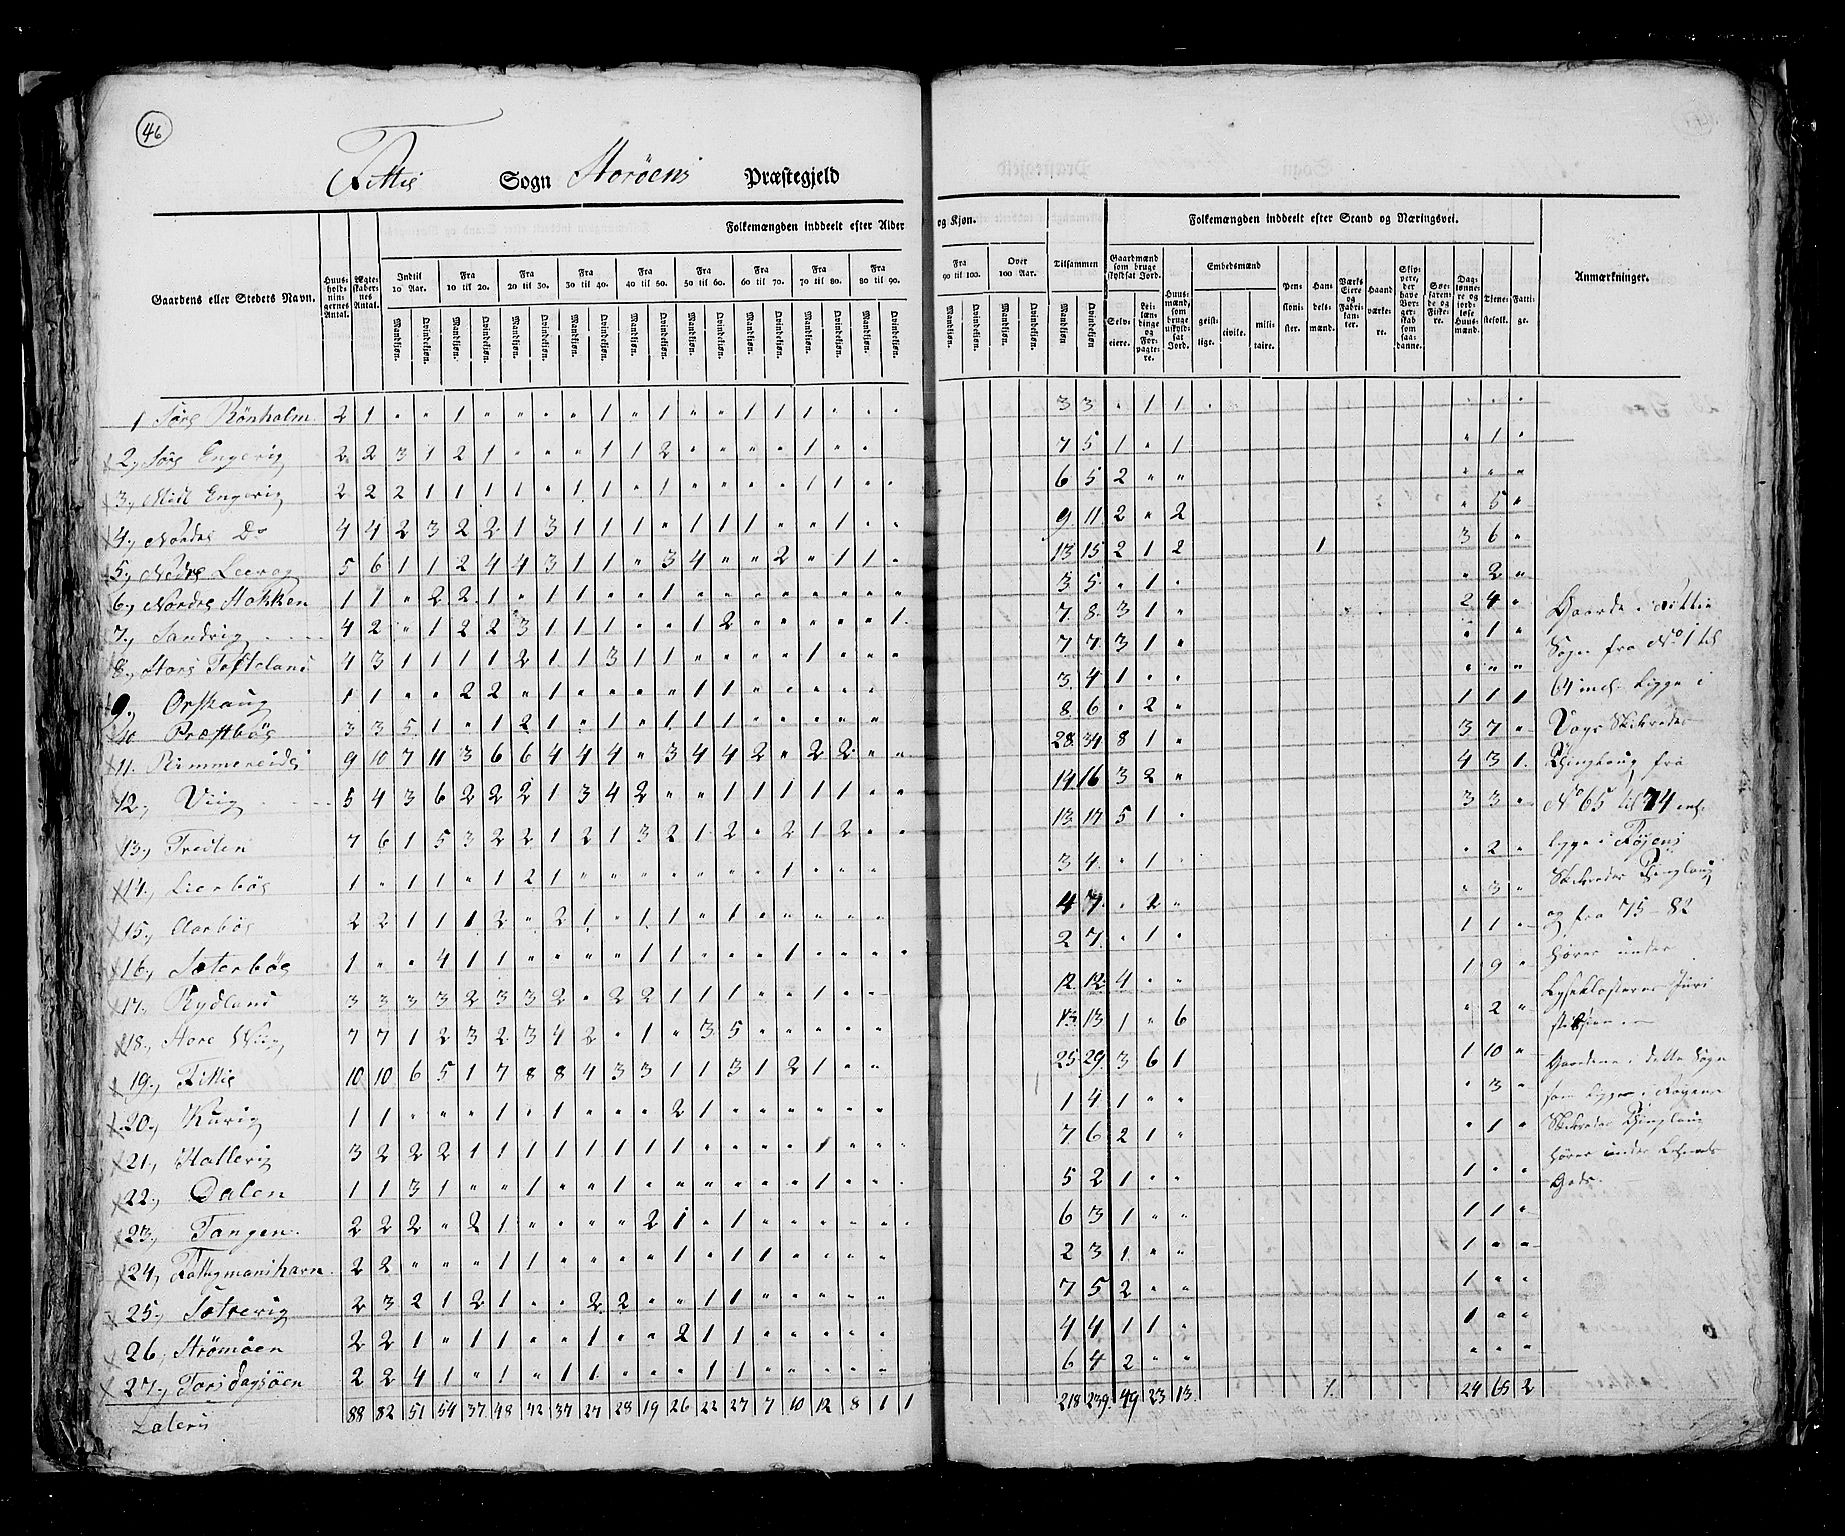 46
Fittie Sogn Storöens Præstegjeld
Gaardens eller Stedets Navn.
Huusholdningernes Antal.
Ægteskabernes Antal.
Folkemængden inddeelt efter Alder og Kjøn.
Indtil 10 Aar.
Fra 10 til 20.
Fra 20 til 30.
Fra 30 til 40.
Fra 40 til 50.
Fra 50 til 60.
Fra 60 til 70.
Fra 70 til 80.
Fra 80 til 90.
Fra 90 til 100.
Over 100 Aar.
Mandkjøn. Qvindekjøn.
Tilsammen
Folkemængden inddeelt efter Stand og Næringsvei.
Gaardmænd som bruge skyldsat Jord.
Selveiere.
Leilændinge og Forpagtere.
Huusmænd, som bruge uskyldsat Jord.
Embedsmænd
geistlige. civile. militaire.
Pensionister.
Handelsmænd.
Værks Eiere og Fabrikanter.
Haandværkere.
Skippere, der have Borgerskab som saadanne.
Søefarende og Fiskere.
Daglønnere og jordløse Huusmænd.
Tjenestefolk.
Fattige.
Anmærkninger.
1 Söre Rönholm 2 1 " " 1 " " " " 1 " 1 " " 1 1 1 " " " 3 3 " 1 1 " " "
2, Söre Engevig 2 2 3 1 2 1 " " " 1 1 2 " " " " 1 " " 7 5 1 " 1 " 1 "
3, Midt Engevig 2 2 2 1 1 1 1 1 " 1 1 " 1 " " " " 1 1 " " 6 5 2 " " " " "
4, Nordre Do 4 4 2 3 2 2 1 3 1 1 1 " 1 1 1 " " 1 " " 9 11 2 " 2 " 5 "
5, Nedre Leervog 5 6 1 1 2 4 4 3 1 1 " 3 4 " " 2 " 1 1 " 13 15 2 1 2 1 3 6 "
6, Nordre Hokken 1 1 " 2 2 1 " 1 1 " " 1 " " " " " " " " 3 5 " 1 " " 2 "
7, Sandvig 4 2 " 1 2 2 3 1 1 1 " " 1 2 " " " " " 1 7 8 3 1 " 2 4 "
8, Store Tofteland 4 3 1 1 1 1 2 1 1 3 1 1 " " " " 1 " " " 7 7 3 1 " " 1 "
9, Orskaug 1 1 " " 2 2 " 1 " " " " 1 1 " " " " " 3 4 1 " " " " "
10 Præstbög 3 3 5 1 " 1 2 1 " 1 " 1 1 1 " " " " " 8 6 " 2 " 1 1 1
11. Rimmereide 9 10 7 11 3 6 6 4 4 4 " 3 4 4 2 " 2 2 " " 28 34 8 1 " 3 7 "
12, Viig 5 4 3 6 2 2 2 1 3 4 2 " " 1 1 1 1 1 " " 14 16 3 2 " 4 3 1
13, Treilen 7 6 1 5 3 2 2 1 2 1 3 2 1 2 " 2 1 2 " " 13 17 5 1 " 3 3 "
14, Lierbög 1 " 1 1 " 1 2 1 " " " " " " " 1 " " " 3 4 " 1 " " 2 "
15, Aarbög 2 2 1 1 1 2 " 2 1 " 1 1 " 1 " " " " " 4 7 " 2 " " 3 "
16, Sæterbög 1 " " 4 1 1 " " " " 1 1 " " " 1 " " " " 2 7 " 1 " 1 1 "
17, Rydland 3 3 3 3 2 3 3 2 " 2 2 1 1 1 " " 1 " " 12 12 4 " " 1 9 "
18, Hore Wiig 7 7 1 2 3 2 3 4 2 " 1 " 3 5 " " " " " 13 13 1 " 6 " 2 "
19, Fittie 10 10 6 5 1 7 8 8 4 3 3 1 1 3 1 2 1 " " 25 29 3 6 1 1 10 "
20, Kurig 1 1 " " " 1 " 1 " " " 2 1 " " " " " " 1 4 1 " " " 3 "
21, Hallevig 3 2 2 2 1 1 1 1 1 1 1 1 " " " " 1 " " " 7 6 2 1 " " 1 "
22, Dalen 1 1 3 1 " " 1 " " 1 " " " " " " 1 " " " 5 2 1 " " 1 " "
23, Tangen 2 2 2 " 2 1 " " " " 2 1 " 1 " " " " " " 6 3 1 " " 1 1 "
24, Fattigmanshavn 2 2 " " " 1 1 " " " " 1 " 1 1 " " " " 2 3 1 " " 1 " "
25, Sætrevig 2 3 2 1 2 1 " " 2 2 " " 1 1 " " " " " 7 5 2 " " 1 " "
26, Strömöen 2 2 1 " 1 1 " " 1 " " 2 1 1 " " " " " 4 4 1 1 " 1 " "
27, Torsdagsöen 2 2 4 1 " 1 " 1 1 " " " 1 1 " " " " " 6 4 2 " " " " "
Lateris 88 82 51 54 37 48 42 37 27 28 19 26 22 27 7 10 12 8 1 1 218 239 49 23 13 1. 24 65 2
Gaarde i Fittie
Sogn fra No 1 til
64 incl. ligge i
Vogs Skibredes
Thinglaug fra
No 65 til 74 incl.
ligge i Föyens
Skibredes Thinglaug
og fra 75 - 82
hörer under
Lyseklosters Juris
diktion.
Gaardene i dette Sogn
som ligger i Föyens
Skibredes Thinglaug
hörer under
Gods.